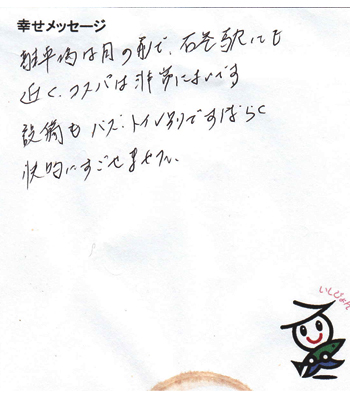 幸せメッセージ
駐車場は目の前で、石巻駅にも
近く、コスパは非常によいです
設備もバス・トイレ別ですばらく
快的にすごせました。
いしぴょん